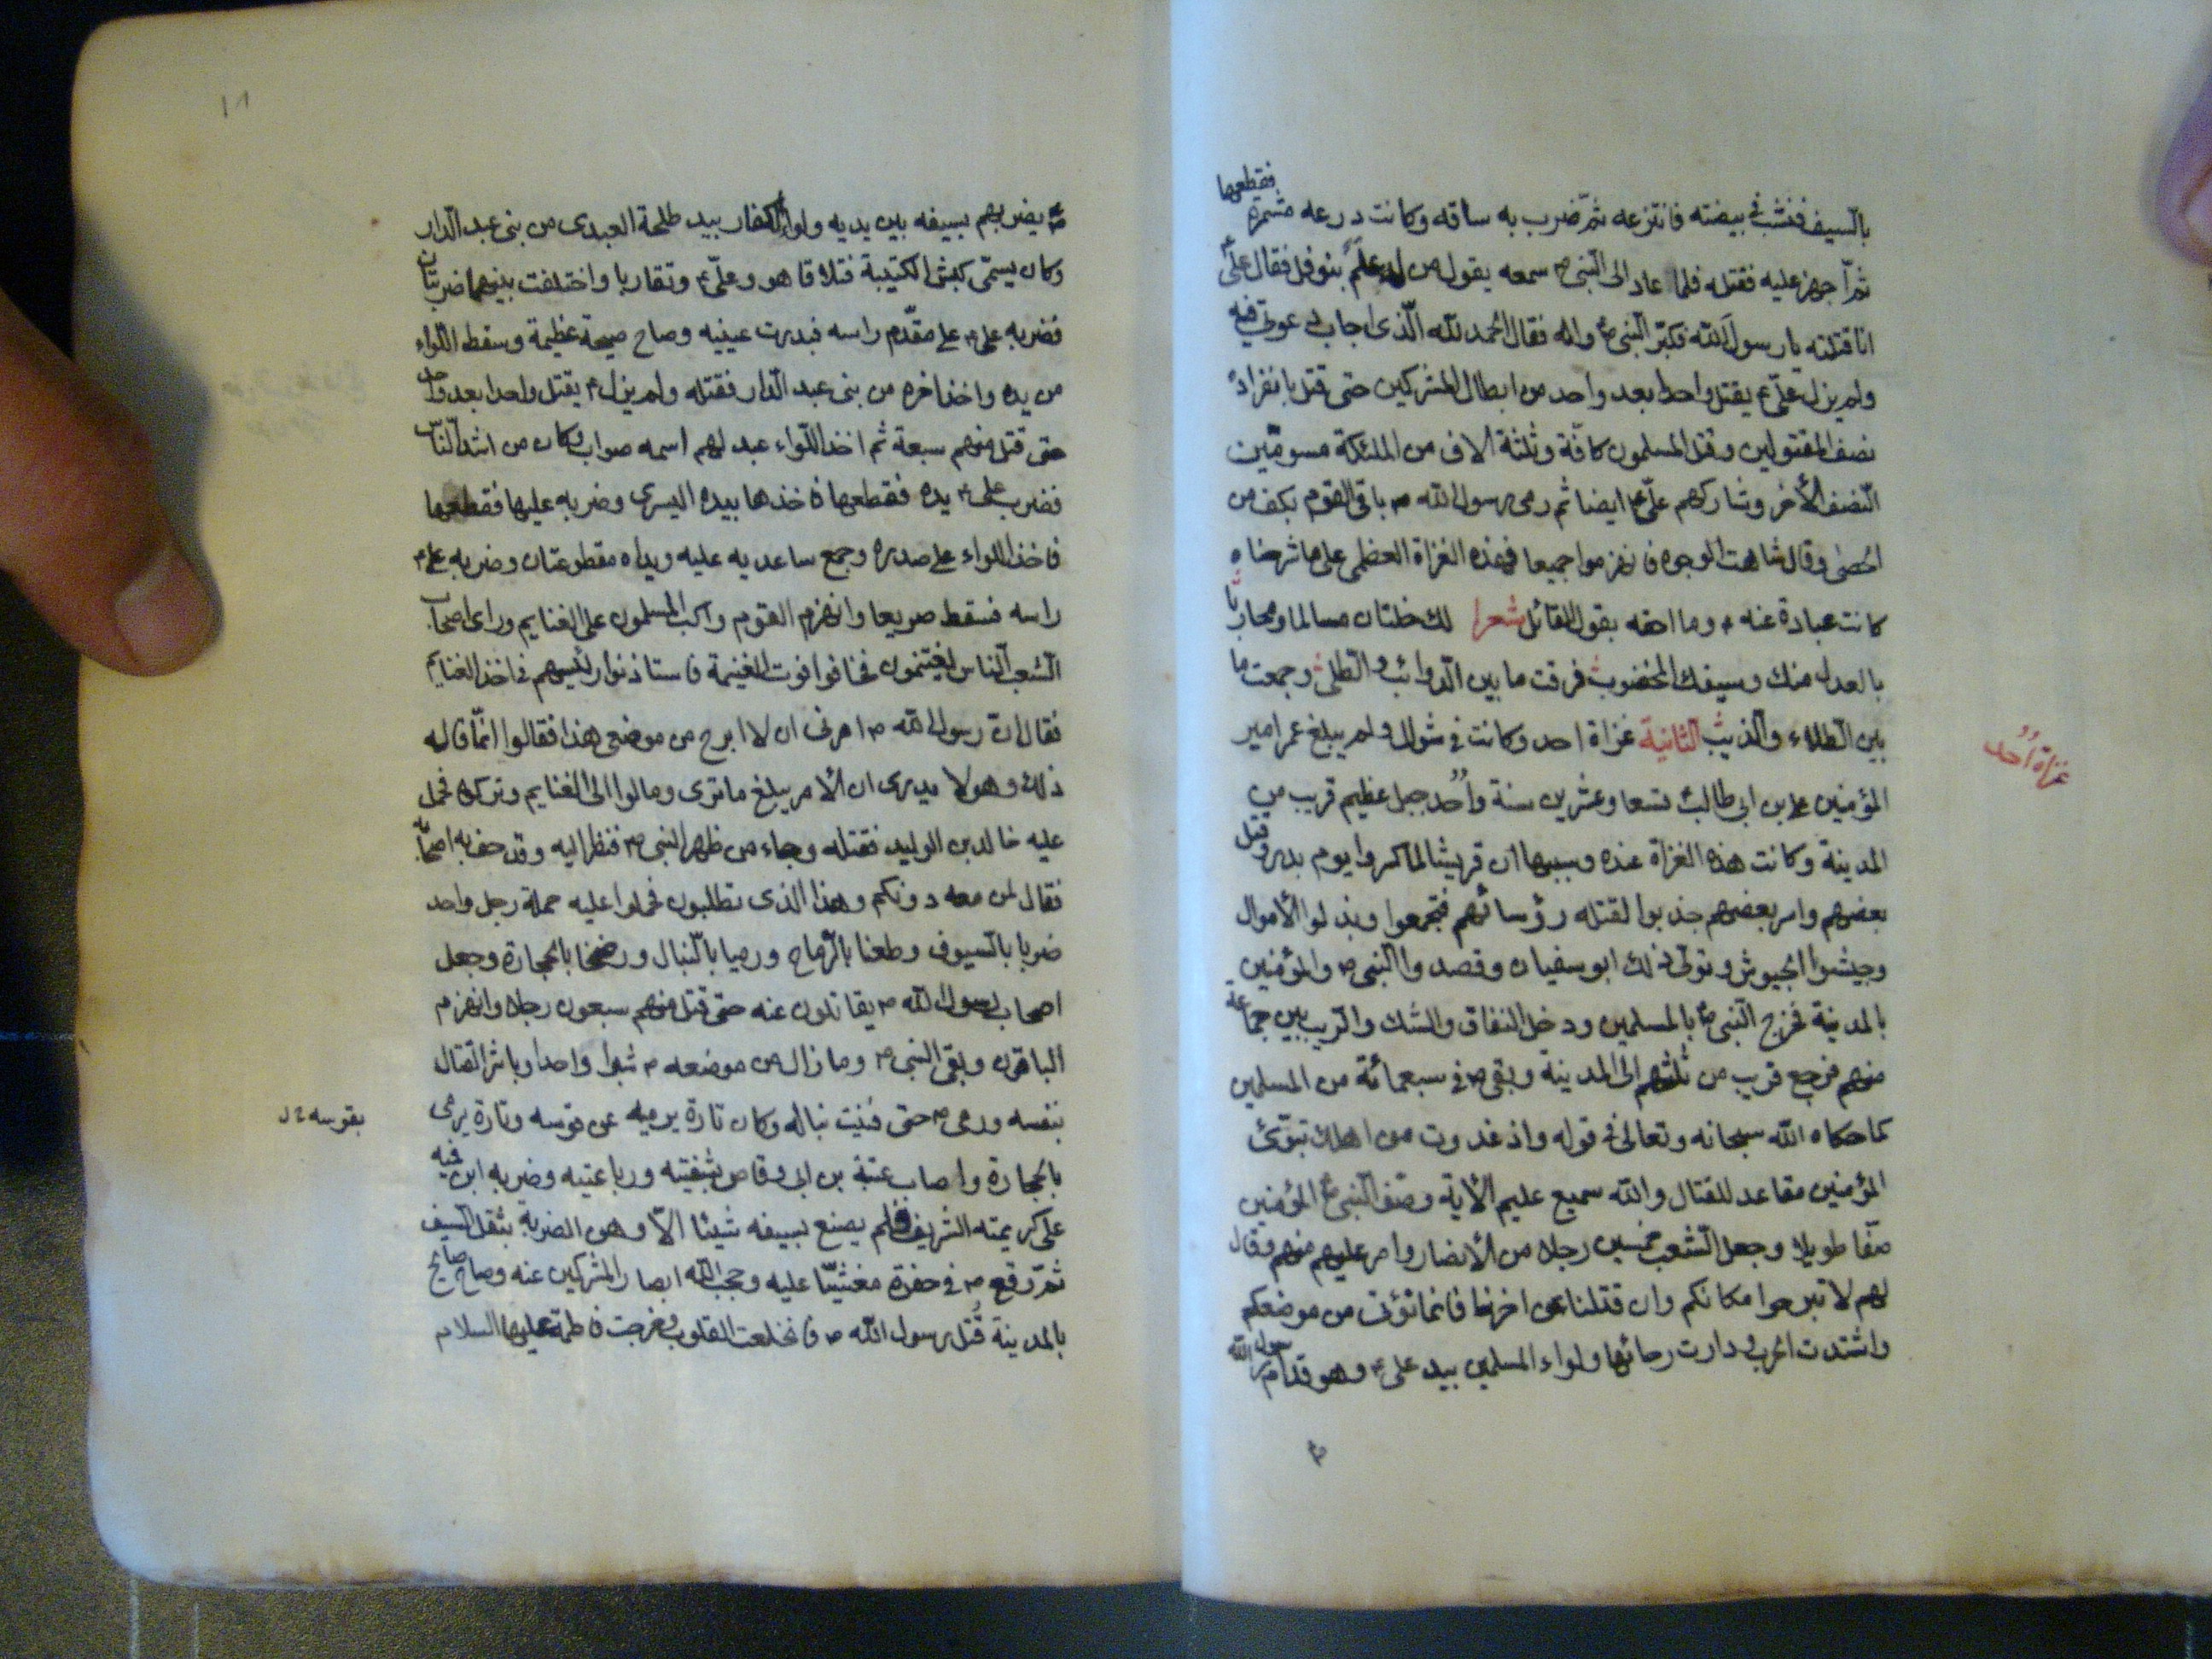 بالسيف فنشب في بيضته فانتزعه ثم ضرب به ساقه وكانت درعه مشمرة فقطعها
ثم اجهز عليه فقتله فلما عاد الى النبي ص سمعه يقول من له علم بنوفل فقال علي ع
انا قتلته يا رسول الله فكبر النبي ص واله فقال الحمد لله الذي اجاب دعوتي فيه
ولم يزل علي ع يقتل واحدا بعد واحد من ابطال المشركين حتى قتل بانفراده
نصف المقتولين وقتل المسلمون كافة وثلثة الاف من الملئكة مسومين
النصف الأخر وشاركهم علي ع ايضا ثم رمى رسول الله ص باقي القوم بكف من
الحصى وقال شاهت الوجوه فانهزموا جميعا فهذه الغزاة العظمى على ما شرحناه
كانت عبادة عنه ع وما احقه بقول القائل شعرا لك خلتان مسالما ومحاربا
بالعدل منك وسيفك المخضوب فرقت ما بين الذوائب والطلى وجمعت ما
بين الطلاء والذيب الثانية غزاة احد وكانت في شوال ولم يبلغ عمر امير
غزاة أُحد
المؤمنين علي بن ابي طالب تسعا وعشرين سنة وأُحد جبل عظيم قريب من
المدينة وكانت هذه الغزاة عنده وسببها ان قريشا لما كسروا يوم بدر وقتل
بعضهم واسر بعضهم حزنوا لقتله رؤسائهم فتجمعوا وبذلوا الأموال
وجيشوا الجيوش وتولى ذلك ابو سفيان وقصدوا النبي ص والمؤمنين
بالمدينة فخرج النبي ص بالمسلمين ودخل النفاق والشك والريب بين جماعة
منهم فرجع قريب من ثلثهم الى المدينة وبقي ص في سبعمائة من المسلمين
كما حكاه الله سبحانه وتعالى في قوله واذ غدوت من اهلك تبوئ
المؤمنين مقاعد للقتال والله سميع عليم الأية وصف النبي ص المؤمنين
صفا طويلا وجعل الشعب خمسين رجلا من الأنصار وامر عليهم منهم وقال
لهم لا تبرحوا مكانكم وان قتلنا عن اخرنا فانما نؤتى من موضعكم
واشتدت الحرب ودارت رحائها ولواء المسلمين بيد علي ع وهو قدام رسول الله
ص يضربهم بسيفه بين يديه ولواء الكفار بيد طلحة العبدي من بني عبد الدار
وكان يسمى كبش الكتيبة فتلاقا هو وعلي ع وتقاربا واختلفت بينهما ضربتان
فضربه علي ع على مقدم راسه فبدرت عينيه وصاح صيحة عظيمة وسقط اللواء
من يده واخذ اخره من بني عبد الدار فقتله ولم يزل ع يقتل واحدا بعد واحد
حتى قتل منهم سبعة ثم اخذ اللواء عبد لهم اسمه صواب وكان من اشد الناس
فضرب علي ع يده فقطعها فاخذها بيده اليسرى وضربه عليها فقطعها
فاخذ اللواء على صدره وجمع ساعديه عليه ويداه مقطوعتان وضربه علي ع
راسه فسقط صريعا وانهزم القوم واكب المسلمون على الغنايم وراى اصحاب
الشعب الناس يغتنمون فخافوا فوت الغنيمة فاستاذنوا رئيسهم في اخذ الغنايم
فقال ان رسول الله ص امرني ان لا ابرح من موضعي هذا فقالوا انما قال له
ذلك وهو لا يدرى ان الأمر يبلغ ما ترى ومالوا الى الغنايم وتركوه فحمل
عليه خالد بن الوليد فقتله وجاء من ظهر النبي ص فنظر اليه وقد حف به اصحابه
فقال لمن معه دونكم وهذا الذي تطلبون فحملوا عليه حملة رجل واحد
ضربا بالسيوف وطعنا بالرماح ورميا بالنبال ورضخا بالحجارة وجعل
اصحاب رسول الله ص يقاتلون عنه حتى قتل منهم سبعون رجلا وانهزم
الباقون وبقى النبي ص وما زال من موضعه ص شبرا واحدا وباشر القتال
بنفسه ورمى ص حتى فنيت نباله وكان تارة يرميه عن قوسه وتارة يرمى
بقوسه
بالحجارة واصاب عتبة بن ابي وقاص بشفتيه ورباعيته وضربه ابن قميه
على كريمته الشريف فلم يصنع بسيفه شيئا الا وهن الضربة بثقل السيف
ثم وقع ص في حفرة مغشيا عليه وحجب الله ابصار المشركين عنه وصاح صايح
بالمدينة قُتل رسول الله ص فانخلعت القلوب وخرجت فاطمة عليها السلام